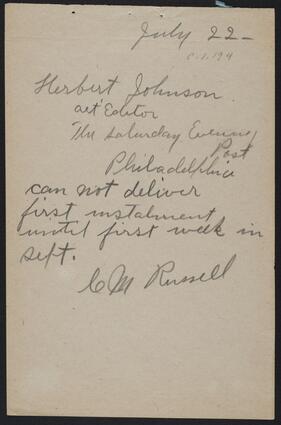 July 22-
C.1.194
Herbert Johnson
art Editor
The Saturday Evening
Post
Philadelphia
can not deliver
first instalment
until first week in
sept.
C M Russell